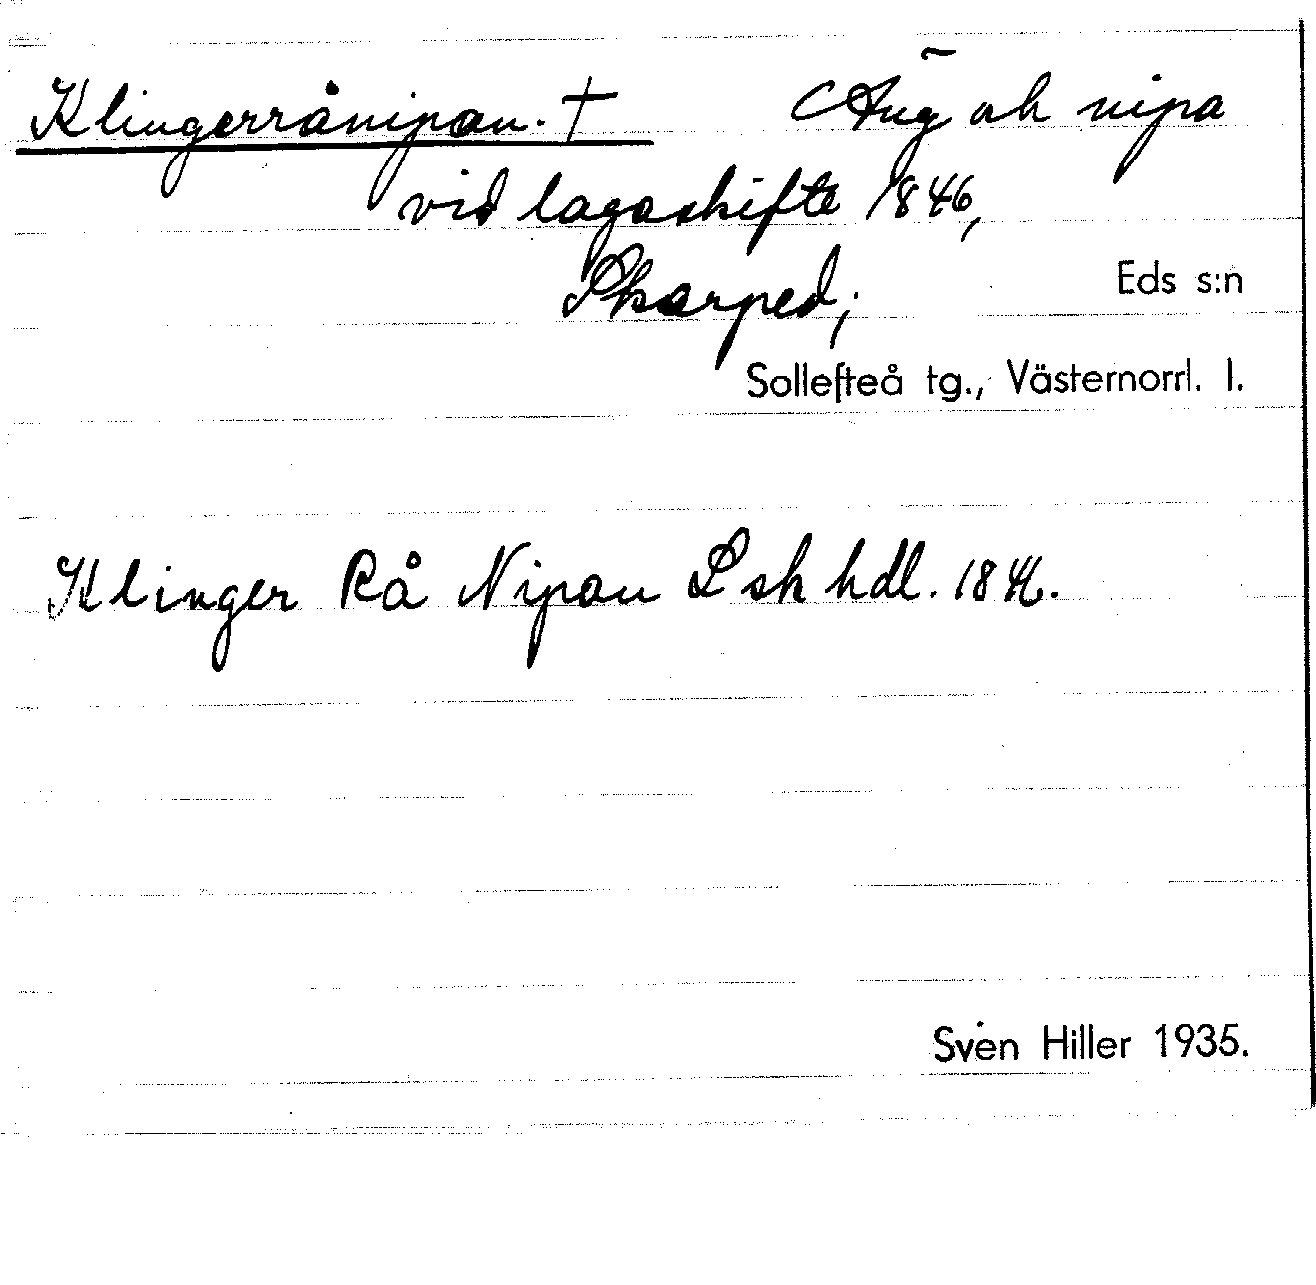 Klingerrånipan. † Äng och nipa
vid lagaskifte 1846,
Skarped;
Eds s:n
Sollefteå tg., Västernorrl. l.
Klinger Rå Nipan Lsk hdl. 1846.
Sven Hiller 1935.